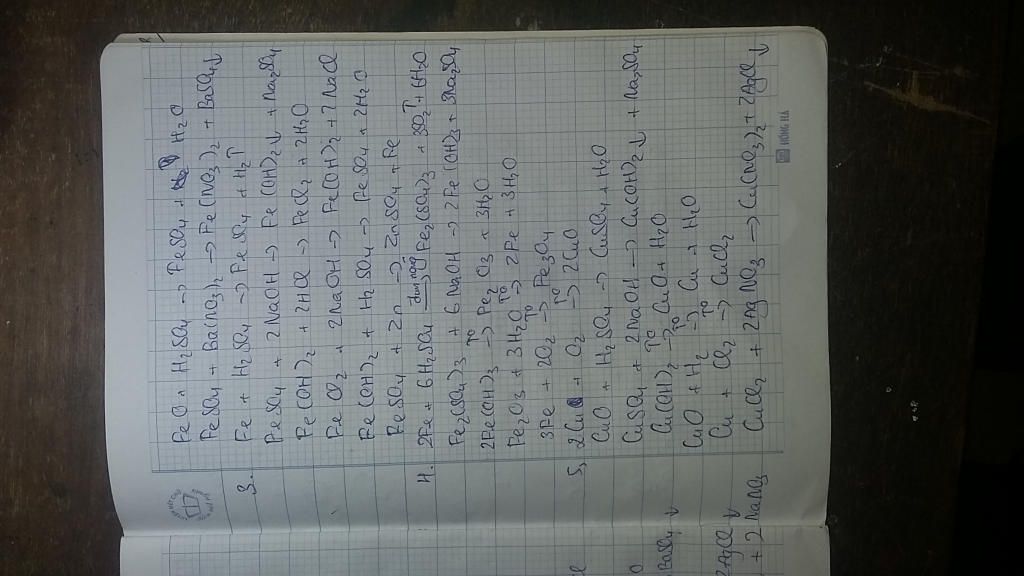 FeO + H2SO4 -> FeSO4 + H2O
FeSO4 + Ba(NO3)2 -> Fe(NO3)2 + BaSO4↓
3. Fe + H2SO4 -> FeSO4 + H2↑
FeSO4 + 2NaOH -> Fe(OH)2↓ + Na2SO4
Fe(OH)2 + 2HCl -> FeCl2 + 2H2O
FeCl2 + 2NaOH -> Fe(OH)2 + 2NaCl
Fe(OH)2 + H2SO4 -> FeSO4 + 2H2O
FeSO4 + Zn -> ZnSO4 + Fe
4. 2Fe + 6H2SO4 đun, nóng -> Fe2(SO4)3 + 3SO2↑ + 6H2O
Fe2(SO4)3 + 6NaOH -> 2Fe(OH)3 + 3Na2SO4
2Fe(OH)3 T0 -> Fe2O3 + 3H2O
Fe2O3 + 3H2O T0 -> 2Fe + 3H2O
3Fe + 2O2 T0 -> Fe3O4
5, 2Cu + O2 T0 -> 2CuO
CuO + H2SO4 -> CuSO4 + H2O
CuSO4 + 2NaOH -> Cu(OH)2↓ + Na2SO4
Cu(OH)2 T0 -> CuO + H2O
CuO + H2 T0 -> Cu + H2O
Cu + Cl2 T0 -> CuCl2
CuCl2 + 2AgNO3 -> Cu(NO3)2 + 2AgCl↓
HỒNG HÀ
BaSO4↓
2AgCl↓
+ 2NaNO3